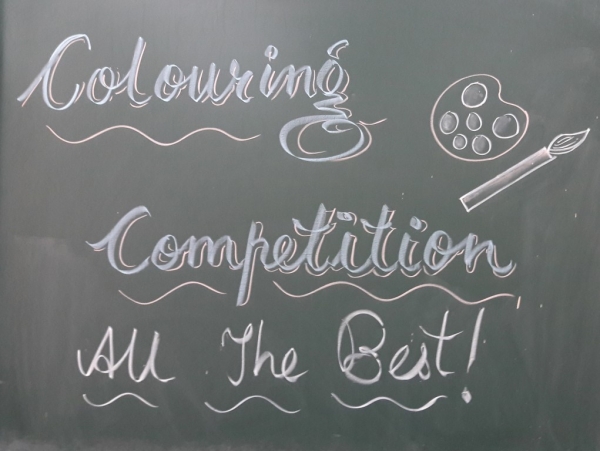 Colouring
Competition
All The Best!